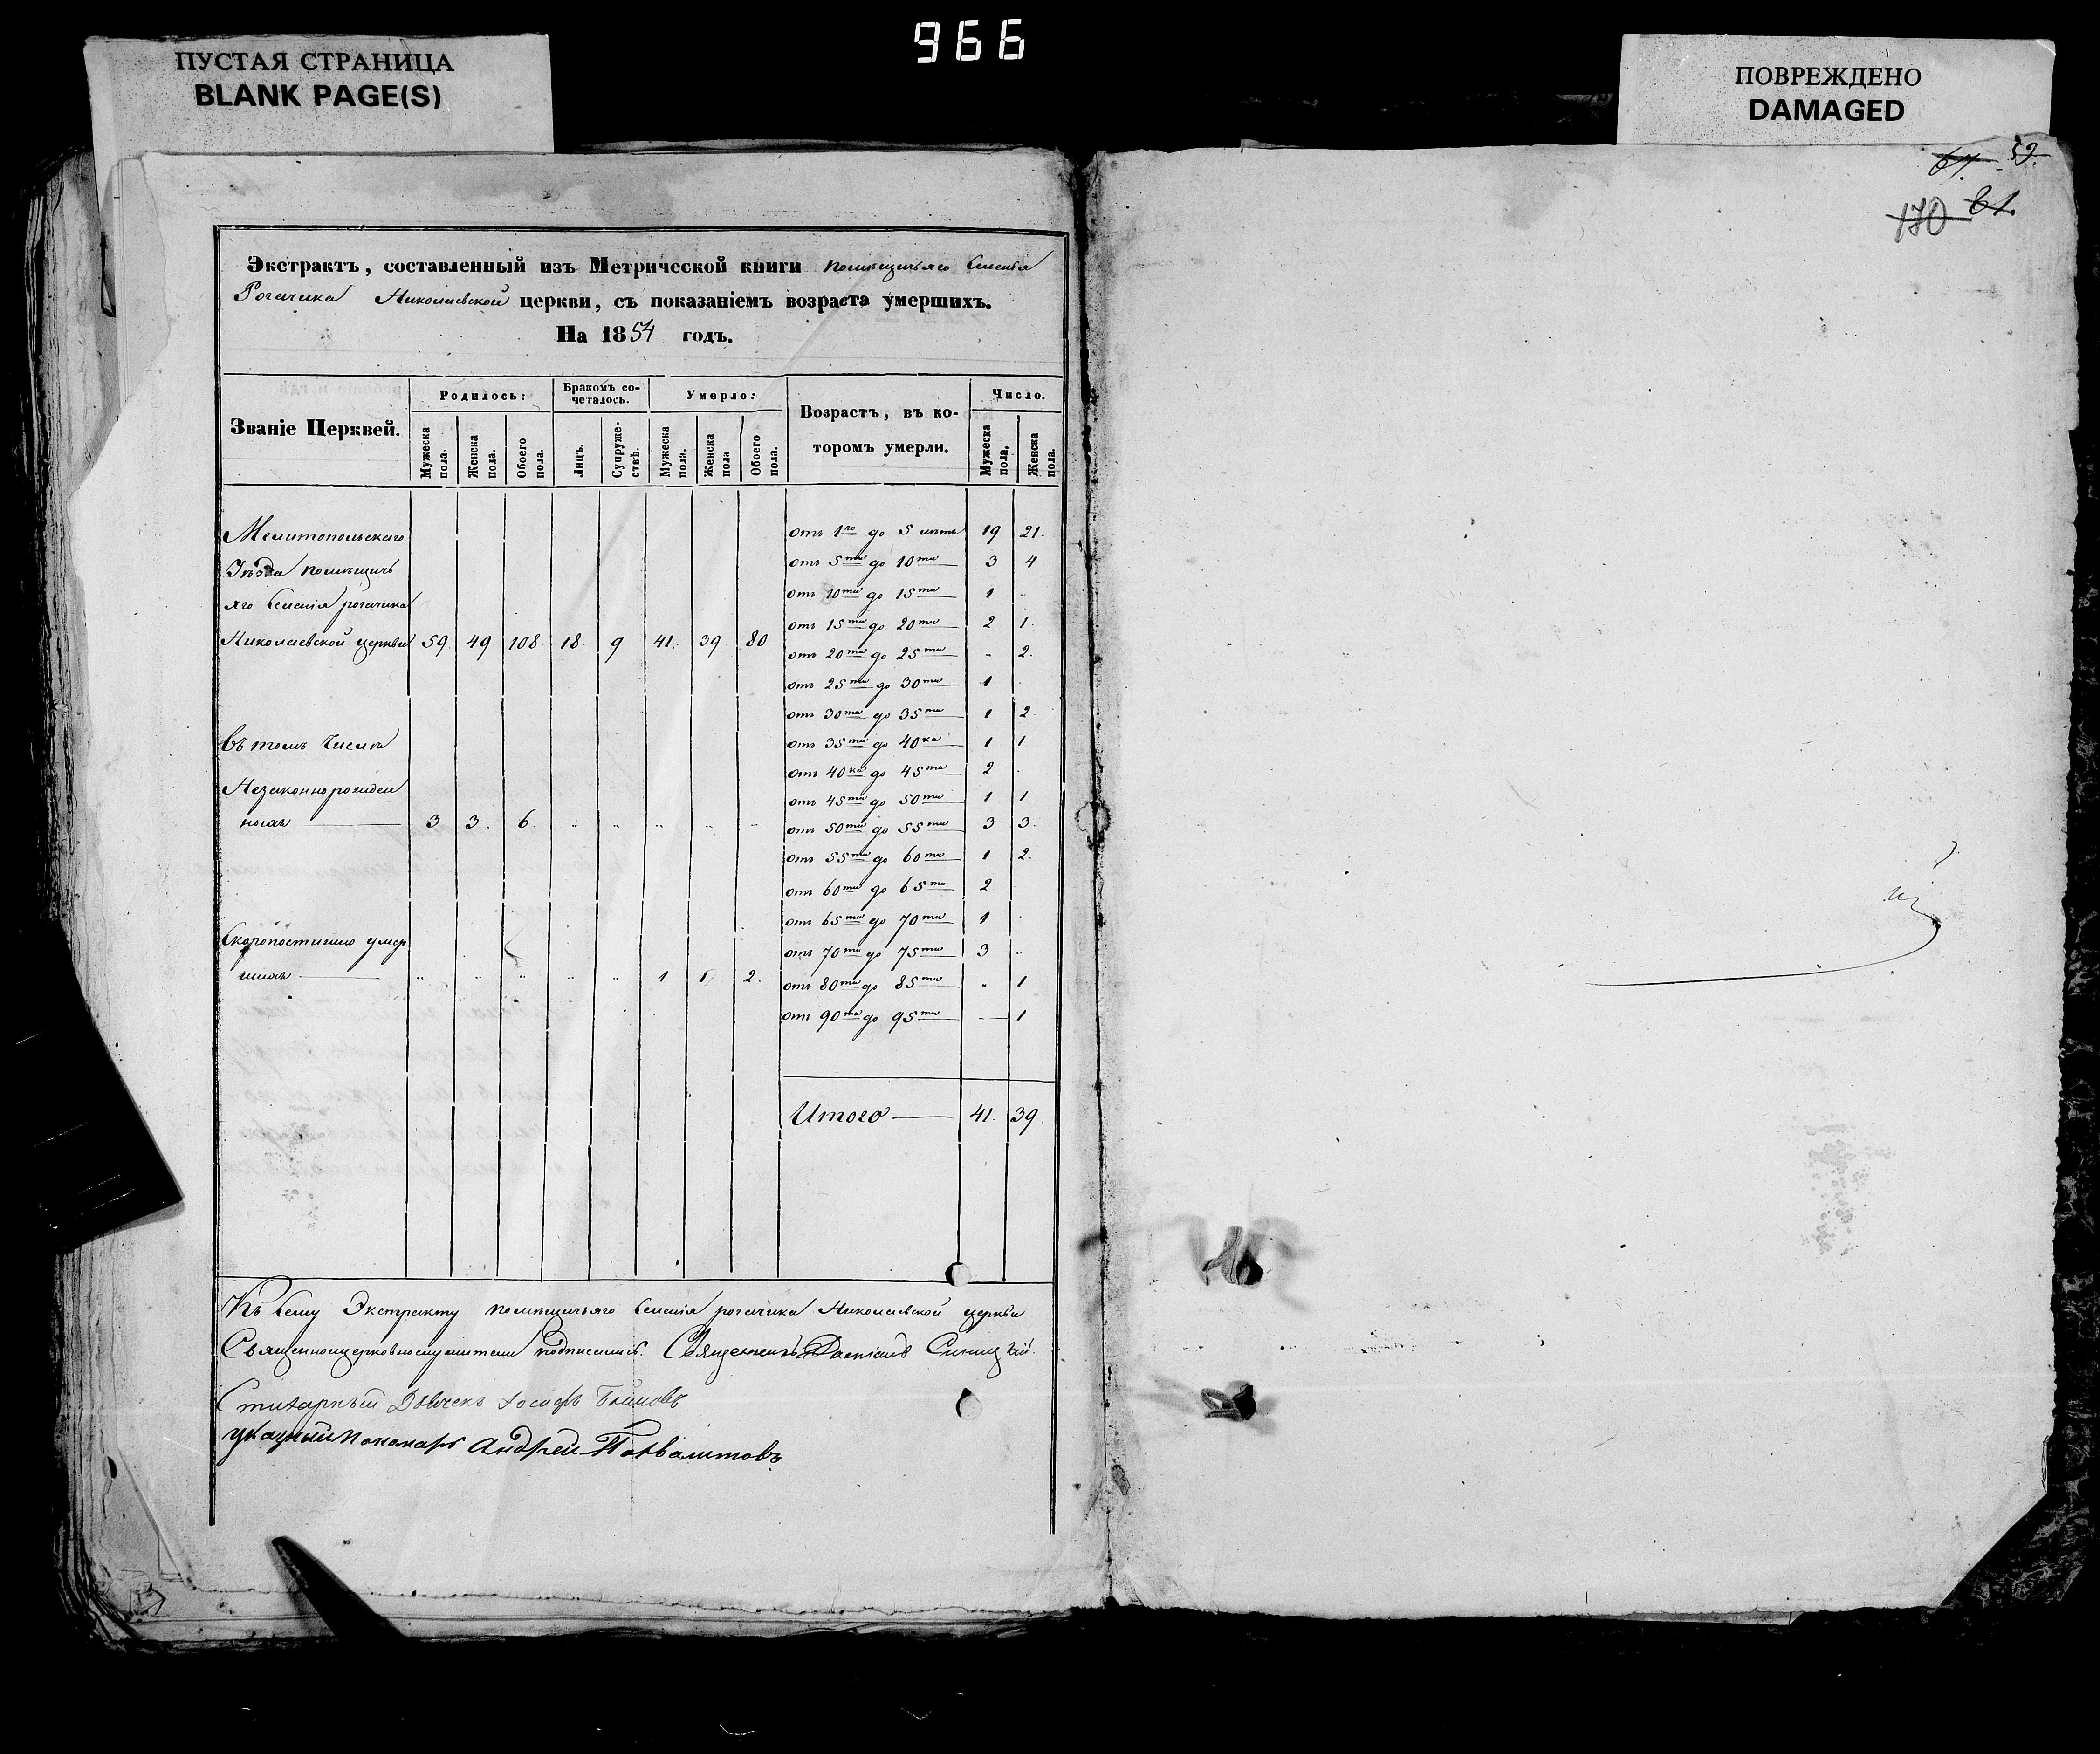 966
ПУСТАЯ СТРАНИЦА
BLANK PAGE(S)
ПОВРЕЖДЕНО
DAMAGED
Экстрактъ, составленный изъ Метрической книги помѣщичьяго Селенія
Рогачика Николаевской церкви, съ показаніемъ возраста умершихъ.
На 1854 годъ.
Званіе Церквей.
Родилось:
Мужеска пола.
Женска пола.
Обоего пола.
Бракомъ со-
четалось.
Лицъ.
Супруже-
ствъ.
Умерло:
Мужеска пола.
Женска пола
Обоего пола.
Возрастъ, въ ко-
торомъ умерли.
Число.
Мужеска пола.
Женска пола.
Мелитопольскаго
Уѣзда помѣщичь
яго Селенія рогачика
Николаевской церкви 59. 49 108 18. 9 41. 39. 80
въ томъ числѣ
Незаконнорожден
ныхъ 3 3. 6. „ „ „ „ „
Скоропостижно умер
шихъ „ „ „ „ „ 1 1 2.
отъ 1го до 5 летъ 19 21.
отъ 5ти до 10ти 3 4
отъ 10ти до 15ти 1 „
отъ 15ти до 20ти 2 1.
отъ 20ти до 25ти „ 2.
отъ 25ти до 30ти 1 „
отъ 30ти до 35ти 1 2
отъ 35ти до 40ка 1 1
отъ 40ка до 45ти 2 „
отъ 45ти до 50ти 1 1
отъ 50ти до 55ти 3 3.
отъ 55ти до 60ти 1 2.
отъ 60ти до 65ти 2
отъ 65ти до 70ти 1 „
отъ 70ти до 75ти 3 „
отъ 80ти до 85ти „ 1
отъ 90та до 95ти — 1
Итого 41. 39.
Къ Сему Экстракту помѣщичьяго Селенія рогачика Николаевской церкви
Священноцерковнослужители подписались. Священникъ Даміанъ Синицкій.
Стихарный Дьячекъ Іосифъ
указный пономарь Андрей Похвалитовъ
67. 59.
170 61.